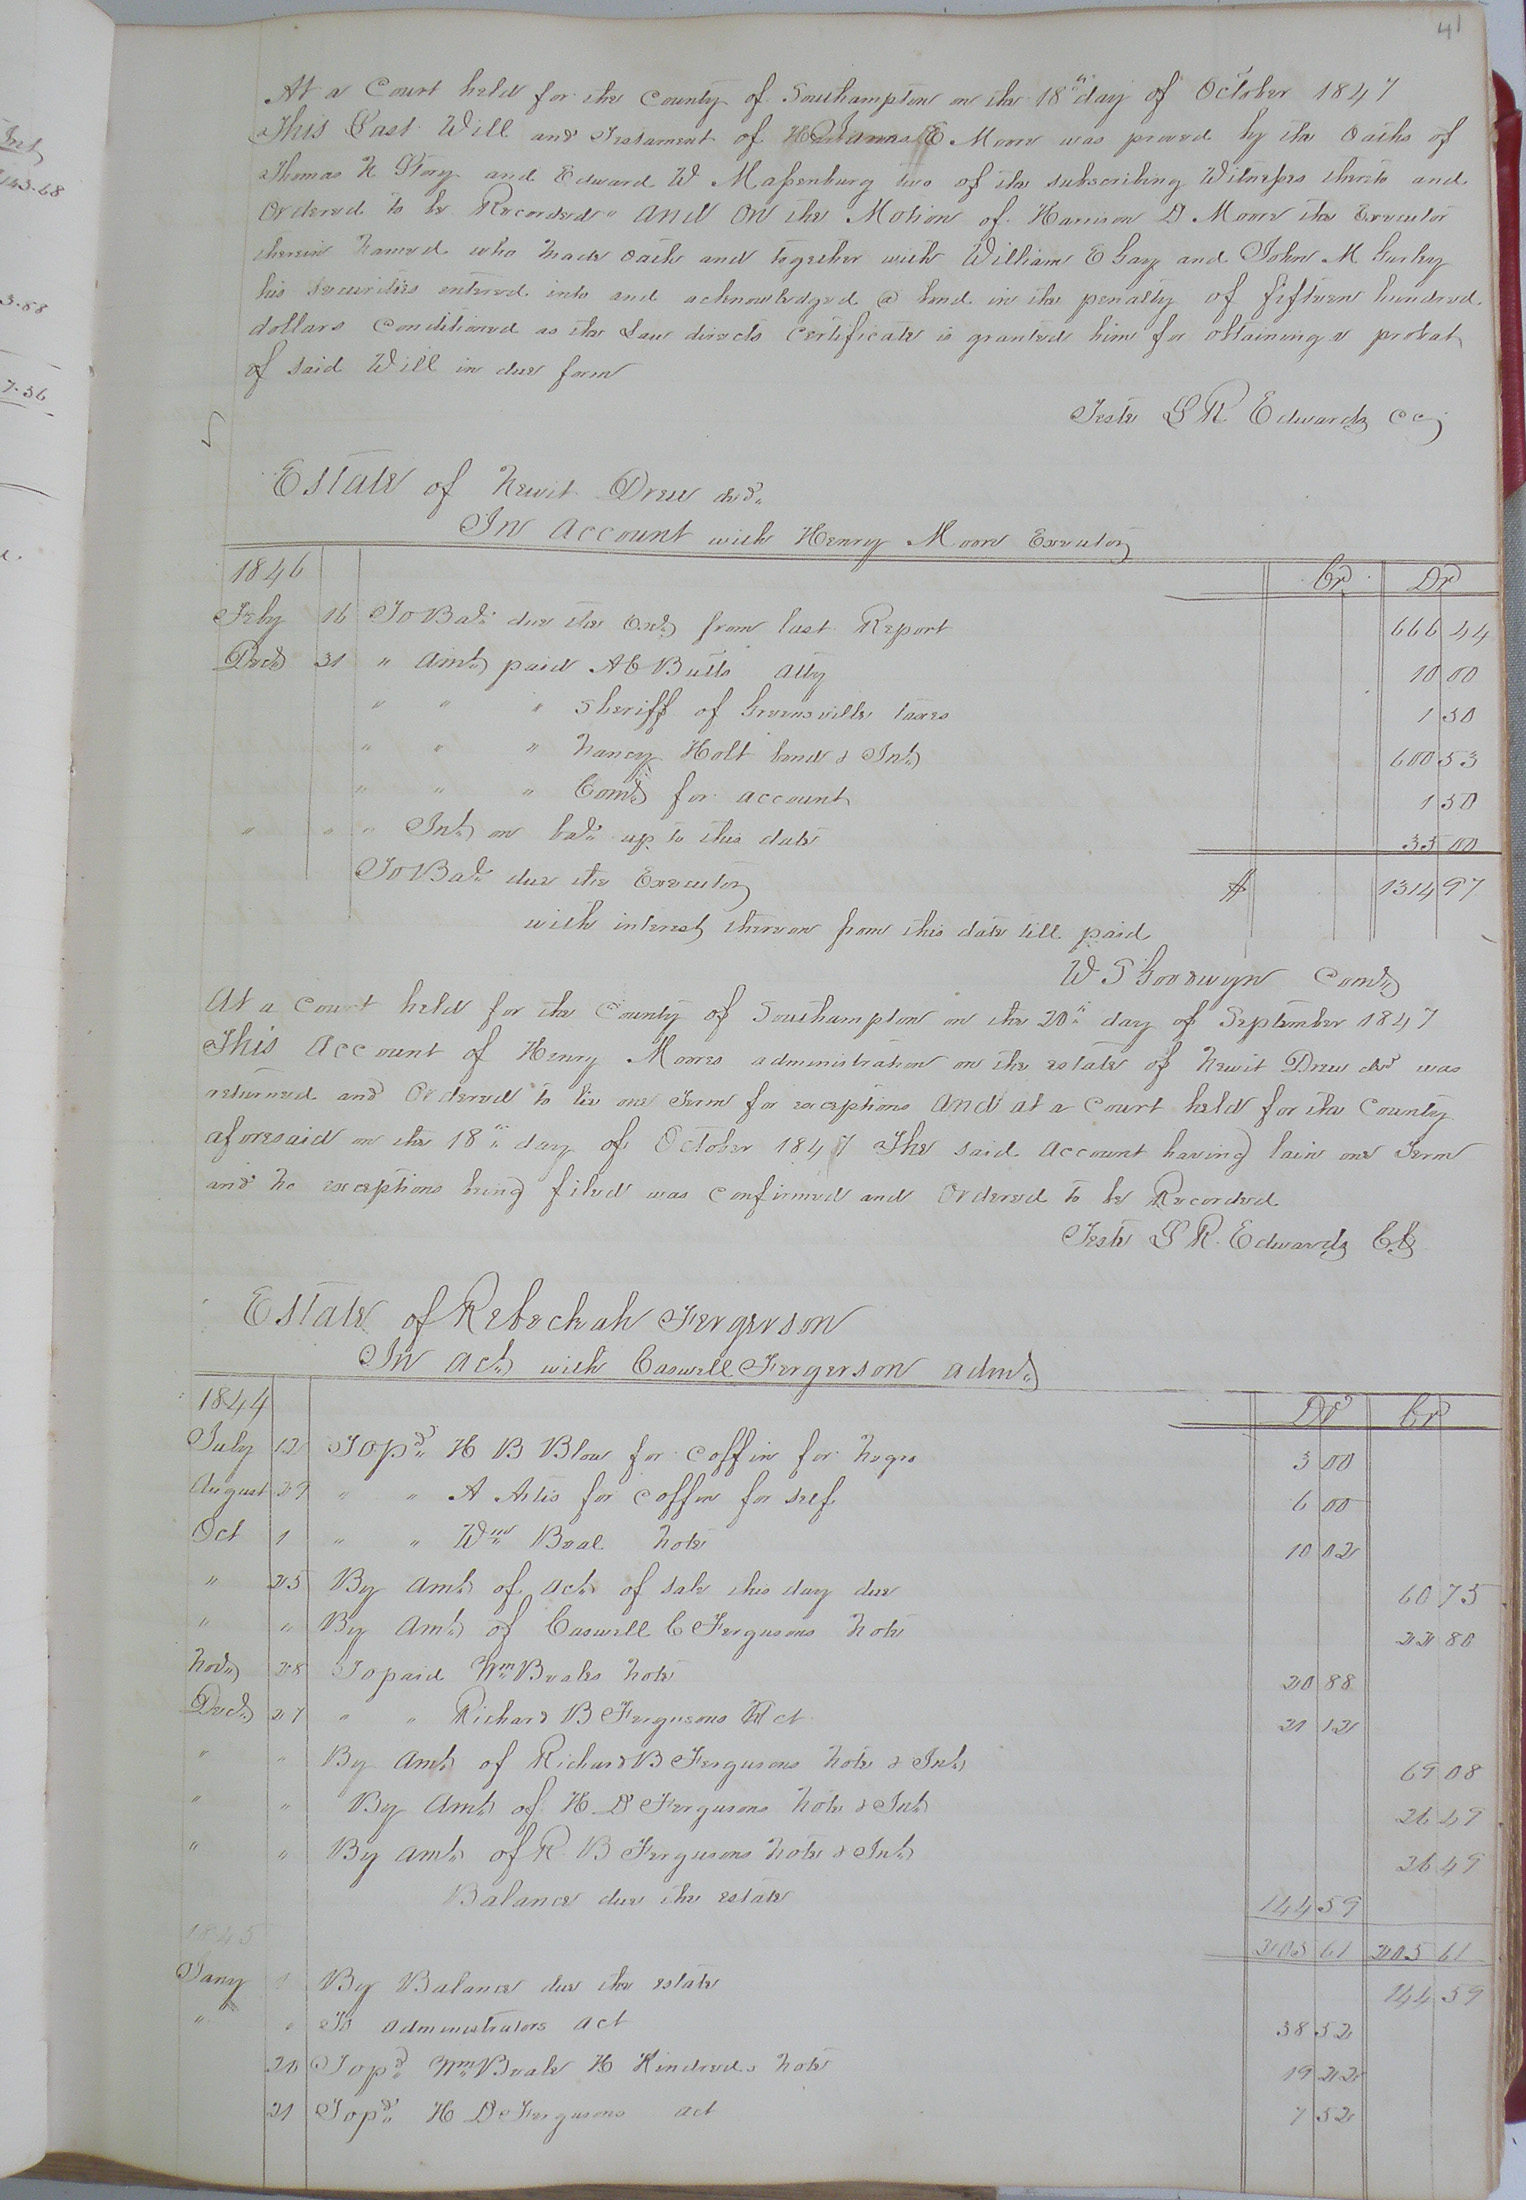 41
At a Court held for the County of Southampton on the 18th day of October 1847
This Last Will and Testament of E Moore was proved by the Oaths of
Thomas N Story and Edward W Massenburg two of the subscribing Witnesses thereto and
Ordered to be Recorded" And On the Motion of Harrison D Moore the Executor
therein Named who made oath and together with William E Gay and John M Gurley
his securities entered into and acknowledged a bond in the penalty of fifteen hundred
dollars Conditioned as the Law directs Certificate is granted him for obtaining a probat
of said Will in due form
Teste L R Edwards CC
Estate of Newit Drew decd
In account with Henry Moore Executor
1846 Cr Dr
Feby 16 To Bal. due the Exr from last Report 666 44
Decr 31 " Amt paid A C Butts Atty 10 00
" " " Sheriff of Greensville taxes 1 50
" " " Nancy Holt bond & Int 600 53
" " " Comr for account 1 50
" " " Int on bal. up to this date 35 00
To Bal. due the Executor $ 1314 97
with interest thereon from this date till paid
W S Goodwyn Comr
At a Court held for the County of Southampton on the 20th day of September 1847
This Account of Henry Moores administration on the estate of Newit Drew decd was
returned and Ordered to lie one Term for exceptions And at a Court held for the County
aforesaid on the 18th day of October 1847 The said Account having lain one Term
and no exceptions being filed was confirmed and Ordered to be Recorded
Teste L R Edwards CC
Estate of Rebeckah Fergerson
In act with Caswell Fergerson admr
1844 Dr Cr
July 12 To pd H B Blow for coffin for Negro 3 00
August 29 " " A Artis for coffin for self 6 00
Oct 1 " " Wm Beal Note 10 02
" 25 By Amt of act of sale this day due 60 75
" " By Amt of Caswell C Fergusons Note 22 80
Novr 28 To paid Wm Beales Note 20 88
Decr 27 " " Richard B Fergusons Act 21 12
" " By Amt of Richard B Fergusons Note & Int 69 08
" " By Amt of H D Fergusons Note & Int 26 49
" " By Amt of R B Fergusons Note & Int 26 49
Balance due the estate 144 59
1845 205 61 205 61
Jany 1 By Balance due the estate 144 59
" " To administrators act 38 52
20 To pd Wm Beale H Kindreds Note 19 22
21 To pd H D Fergusons act 7 52